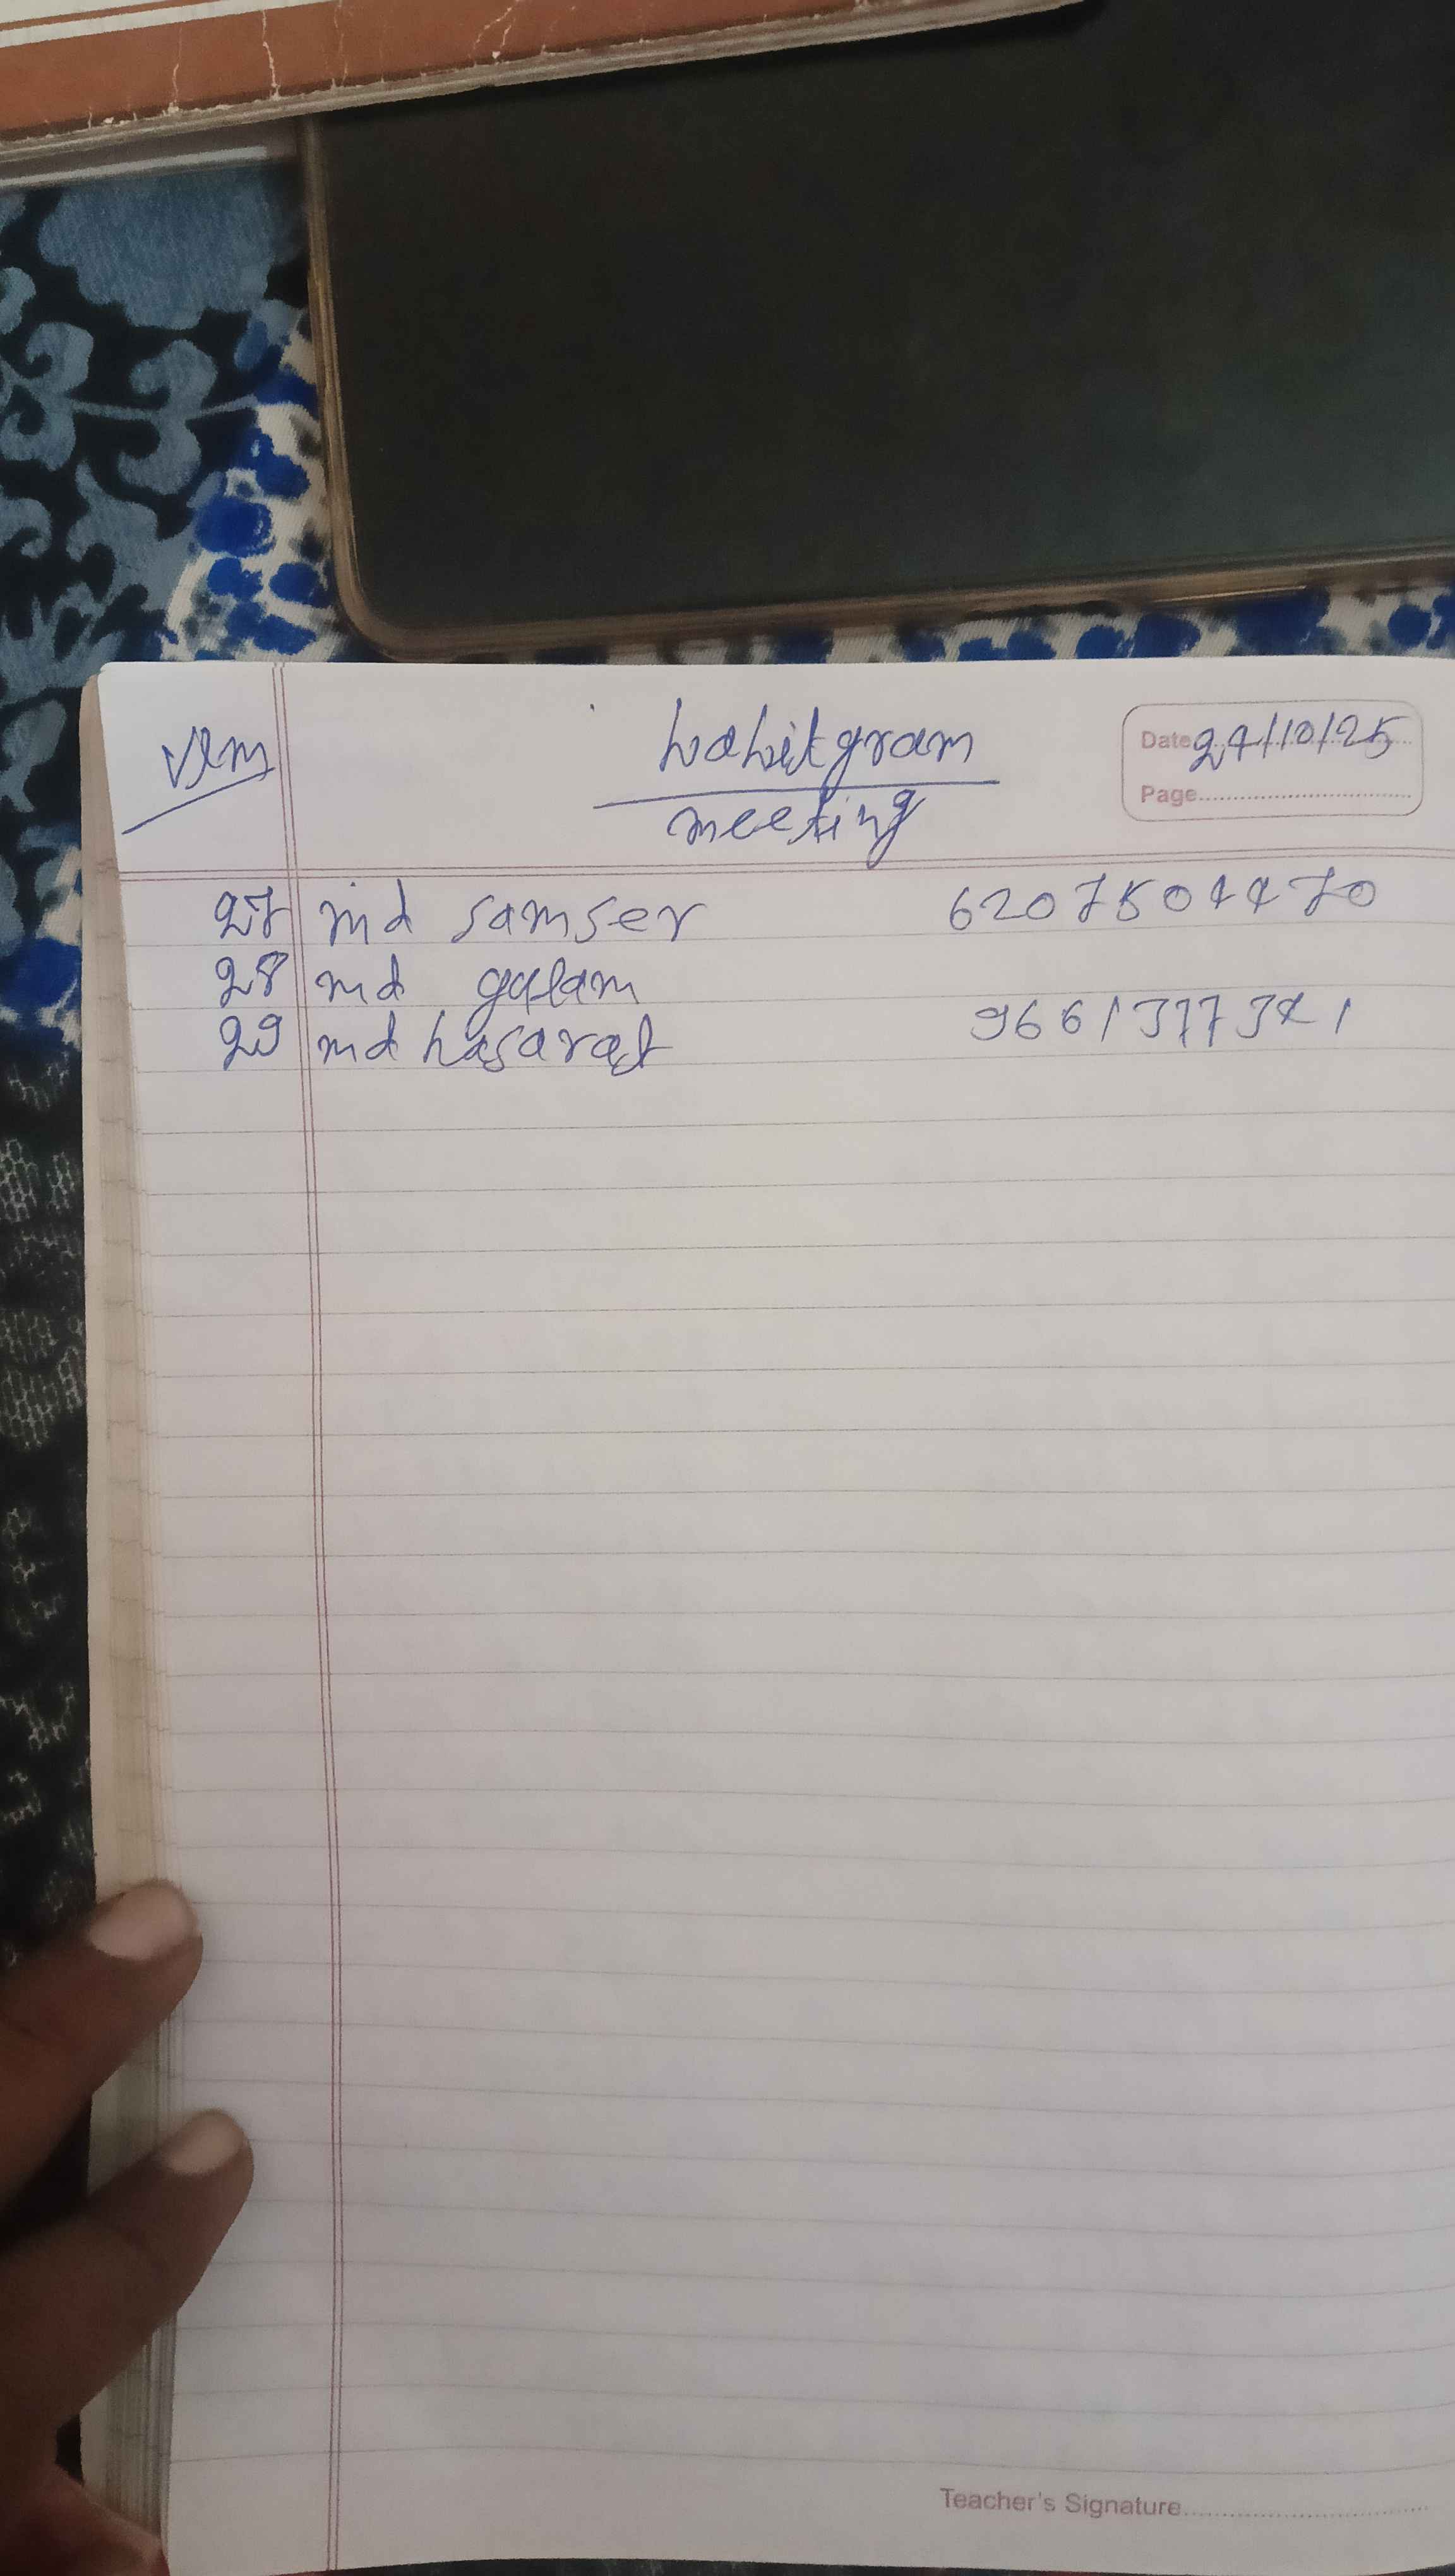 VRM
meeting
Date 27/10/25
Page
27 md samser 6207504470
28 md galam
29 md hasarat 9661377341
Teacher's Signature